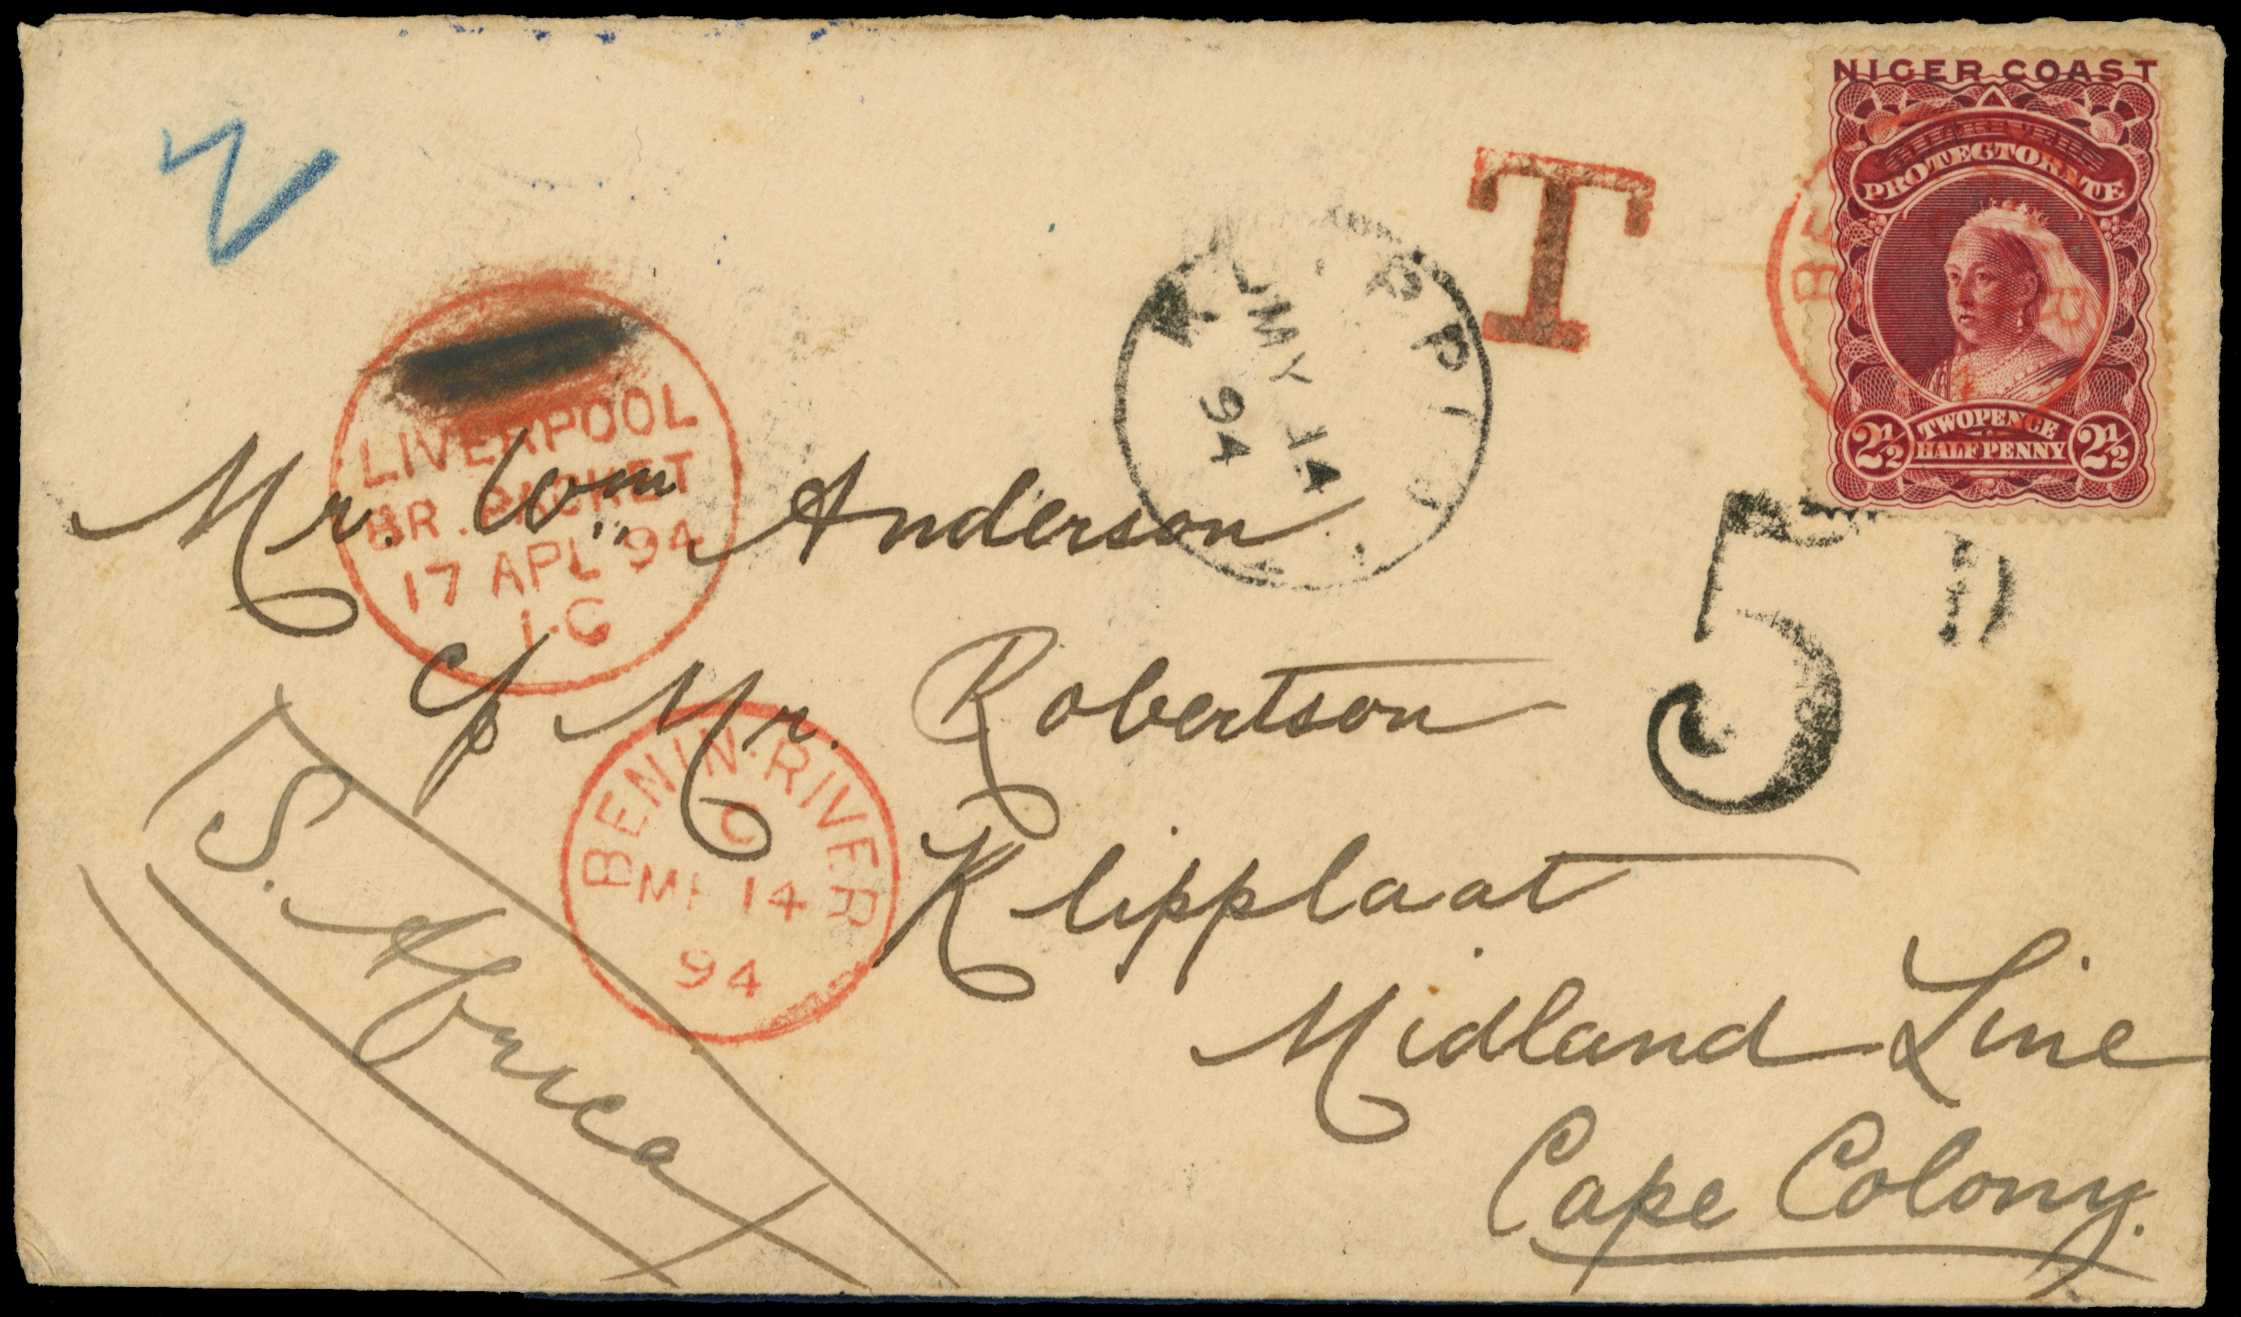 NIGER COAST
PROTECTORATE
TWOPENCE
HALFPENNY
2½ 2½
T
MY 14
94
LIVERPOOL
BR. PACKET
17 APL 94
1.C
5D
Mr. Wm Anderson
c/o Mr. Robertson
Klipplaat
Midland Line
Cape Colony.
S. Africa
BENIN. RIVER
C
14
94